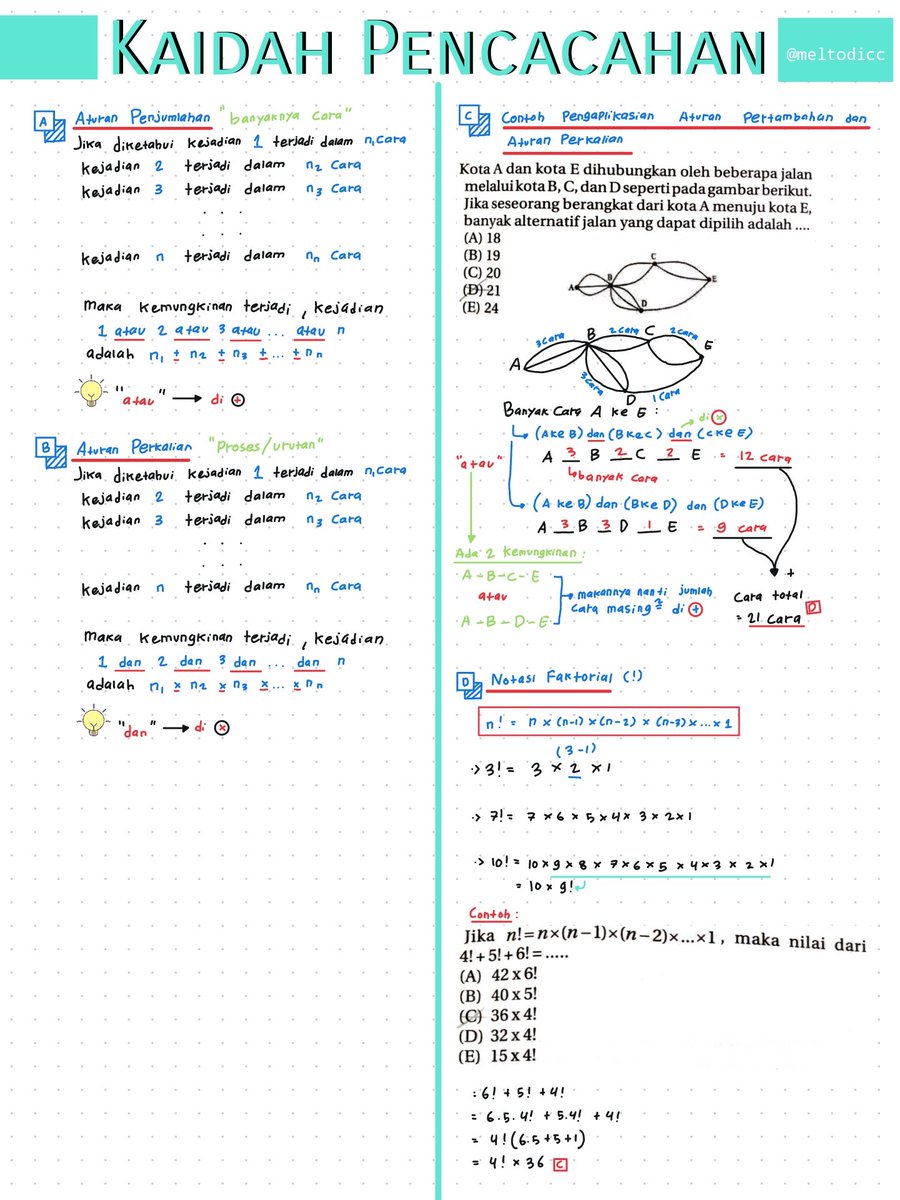 KAIDAH PENCACAHAN
@meltodicc
A Aturan Penjumlahan "banyaknya cara"
Jika diketahui kejadian 1 terjadi dalam n₁ cara
kejadian 2 terjadi dalam n₂ cara
kejadian 3 terjadi dalam n₃ cara
. . .
. . .
kejadian n terjadi dalam nₙ cara
maka kemungkinan terjadi, kejadian
1 atau 2 atau 3 atau ... atau n
adalah n₁ + n₂ + n₃ + ... + nₙ
"atau" → di +
B Aturan Perkalian "Proses/urutan"
Jika diketahui kejadian 1 terjadi dalam n₁ cara
kejadian 2 terjadi dalam n₂ cara
kejadian 3 terjadi dalam n₃ cara
. . .
. . .
kejadian n terjadi dalam nₙ cara
maka kemungkinan terjadi, kejadian
1 dan 2 dan 3 dan ... dan n
adalah n₁ x n₂ x n₃ x ... x nₙ
"dan" → di x
C Contoh Pengaplikasian Aturan Pertambahan dan
Aturan Perkalian
Kota A dan kota E dihubungkan oleh beberapa jalan
melalui kota B, C, dan D seperti pada gambar berikut.
Jika seseorang berangkat dari kota A menuju kota E,
banyak alternatif jalan yang dapat dipilih adalah ....
(A) 18
(B) 19
(C) 20
(D) 21
(E) 24
A B C D E
3 cara B 2 cara C 2 cara
A E
3 cara D 1 cara
Banyak Cara A ke E :
di x
(A ke B) dan (B ke C) dan (C ke E)
"atau" A 3 B 2 C 2 E = 12 cara
banyak cara
(A ke B) dan (B ke D) dan (D ke E)
A 3 B 3 D 1 E = 9 cara
Ada 2 kemungkinan :
A - B - C - E
atau
A - B - D - E
makannya nanti jumlah
cara masing² di +
+
Cara total
= 21 cara D
D Notasi Faktorial (!)
n! = n x (n-1) x (n-2) x (n-3) x ... x 1
(3-1)
·> 3! = 3 x 2 x 1
·> 7! = 7 x 6 x 5 x 4 x 3 x 2 x 1
·> 10! = 10 x 9 x 8 x 7 x 6 x 5 x 4 x 3 x 2 x 1
= 10 x 9!
Contoh :
Jika n!=n×(n−1)×(n−2)×...×1, maka nilai dari
4!+5!+6!=.....
(A) 42 x 6!
(B) 40 x 5!
(C) 36 x 4!
(D) 32 x 4!
(E) 15 x 4!
: 6! + 5! + 4!
= 6.5.4! + 5.4! + 4!
= 4! (6.5+5+1)
= 4! x 36 C